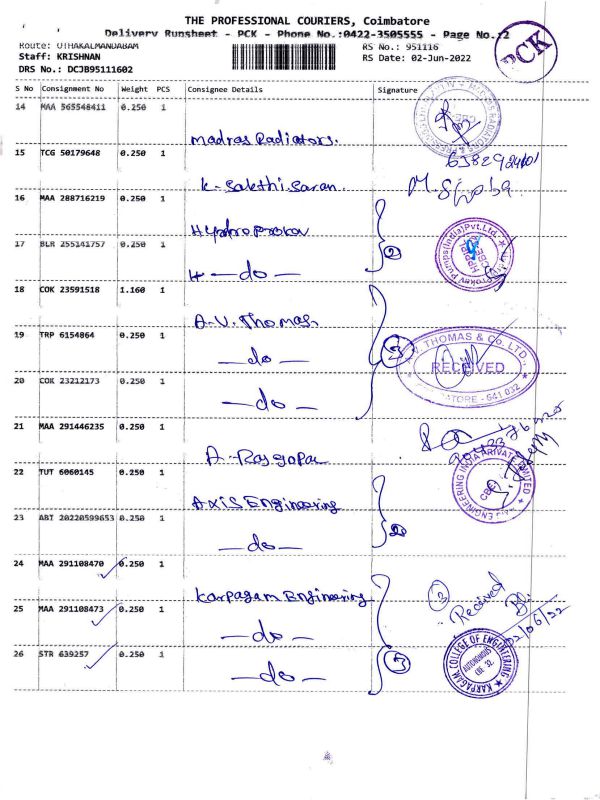 THE PROFESSIONAL COURIERS, Coimbatore
Delivery Runsheet - PCK - Phone No.:0422-3505555 - Page No.:2
PCK
Route: OTHAKALMANDABAM RS No.: 951116
Staff: KRISHNAN RS Date: 02-Jun-2022
DRS No.: DCJB95111602
S No Consignment No Weight PCS Consignee Details Signature
14 MAA 565548411 0.250 1
Madras Radiators.
15 TCG 50179648 0.250 1
K. Sakthi Saran.
16 MAA 288716219 0.250 1
Hydro Prokav
17 BLR 255141757 0.250 1
- do - 2
18 COK 23591518 1.160 1
A.V. Thomas.
19 TRP 6154864 0.250 1
- do - 3
THOMAS & Co. LTD.,
RECEIVED
COIMBATORE - 641 032
20 COK 23212173 0.250 1
- do -
21 MAA 291446235 0.250 1
A. Rasgopal
22 TUT 6060145 0.250 1
Axis Engineering
ENGINEERING INDIA PRIVATE LIMITED
23 ABT 20220599653 0.250 1
- do - 2
24 MAA 291108470 0.250 1
Karpagam Engineering
3 Received
02/06/22
25 MAA 291108473 0.250 1
- do -
26 STR 639257 0.250 1
- do - 3
KARPAGAM COLLEGE OF ENGINEERING
AUTONOMOUS
CBE 32.